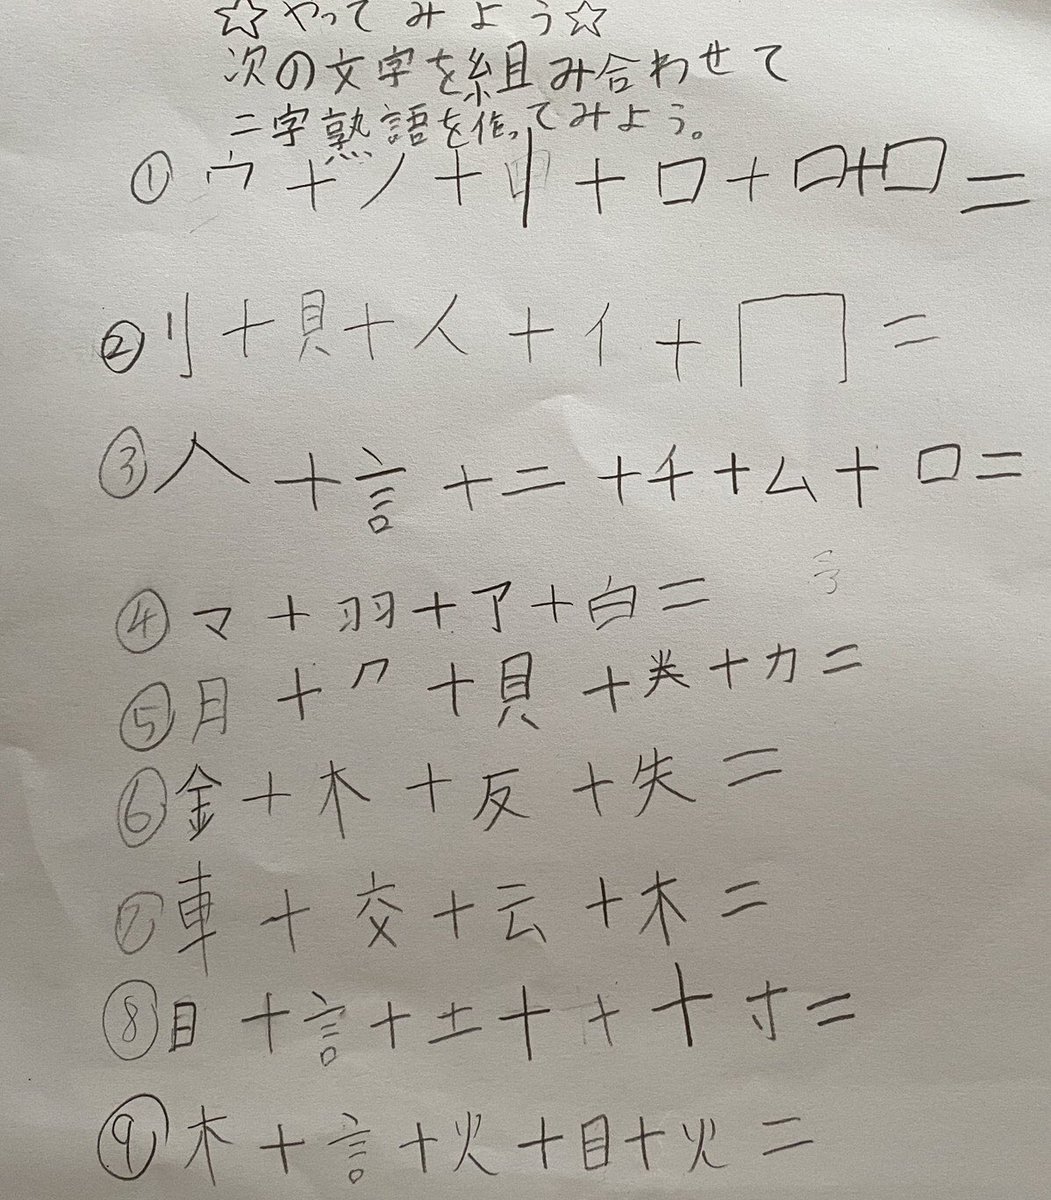 ☆やってみよう☆
次の文字を組み合わせて
二字熟語を作ってみよう。
① ウ + ノ + 丨 + 口 + 口 + 口 =
② 刂 + 貝 + 人 + イ + 冂 =
③ 人 + 言 + 二 + チ + ム + 口 =
④ マ + 羽 + ア + 白 =
⑤ 月 + ⺈ + 貝 + 龹 + カ =
⑥ 金 + 木 + 反 + 失 =
⑦ 車 + 交 + 云 + 木 =
⑧ 目 + 言 + 土 + 十 + 寸 =
⑨ 木 + 言 + 火 + 目 + 火 =